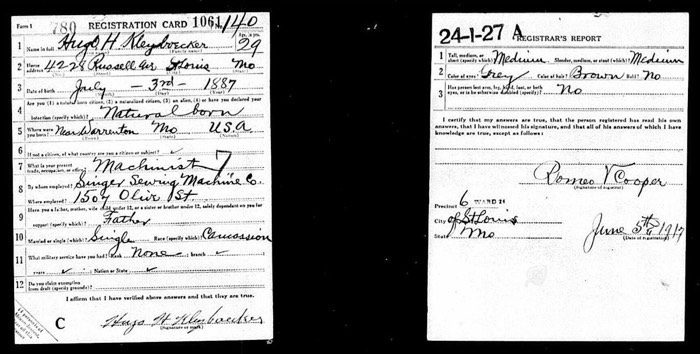 Form 1 780 REGISTRATION CARD 1061 No. 140
1 Name in full Hugo H. Kleyboecker Age, in yrs. 29
(Given name) (Family name)
2 Home address 4228 Russell Av St Louis Mo
(No.) (Street) (City) (State)
3 Date of birth July — 3rd — 1887
(Month) (Day) (Year)
4 Are you (1) a natural-born citizen, (2) a naturalized citizen, (3) an alien, (4) or have you declared your
intention (specify which)? Natural born
5 Where were you born? Near Warrenton Mo U.S.A.
(Town) (State) (Nation)
6 If not a citizen, of what country are you a citizen or subject? ✓
7 What is your present trade, occupation, or office? Machinist 7
8 By whom employed? Singer Sewing Machine Co.
Where employed? 1507 Olive St.
9 Have you a father, mother, wife, child under 12, or a sister or brother under 12, solely dependent on you for
support (specify which)? Father
10 Married or single (which)? Single Race (specify which)? Caucassion
11 What military service have you had? Rank None branch ✓
years ✓ ; Nation or State ✓
12 Do you claim exemption
from draft (specify grounds)? ✓
I affirm that I have verified above answers and that they are true.
C Hugo H Kleyboecker
(Signature or mark)
24-1-27 A
REGISTRAR'S REPORT
1 Tall, medium, or short (specify which)? Medium Slender, medium, or stout (which)? Medium
2 Color of eyes? Grey Color of hair? Brown Bald? No
3 Has person lost arm, leg, hand, foot, or both
eyes, or is he otherwise disabled (specify)? No
I certify that my answers are true, that the person registered has read his own
answers, that I have witnessed his signature, and that all of his answers of which I have
knowledge are true, except as follows:
Romeo V Cooper
(Signature of registrar)
Precinct 6 WARD
City of St Louis
State Mo
June 5th 1917
(Date of registration)